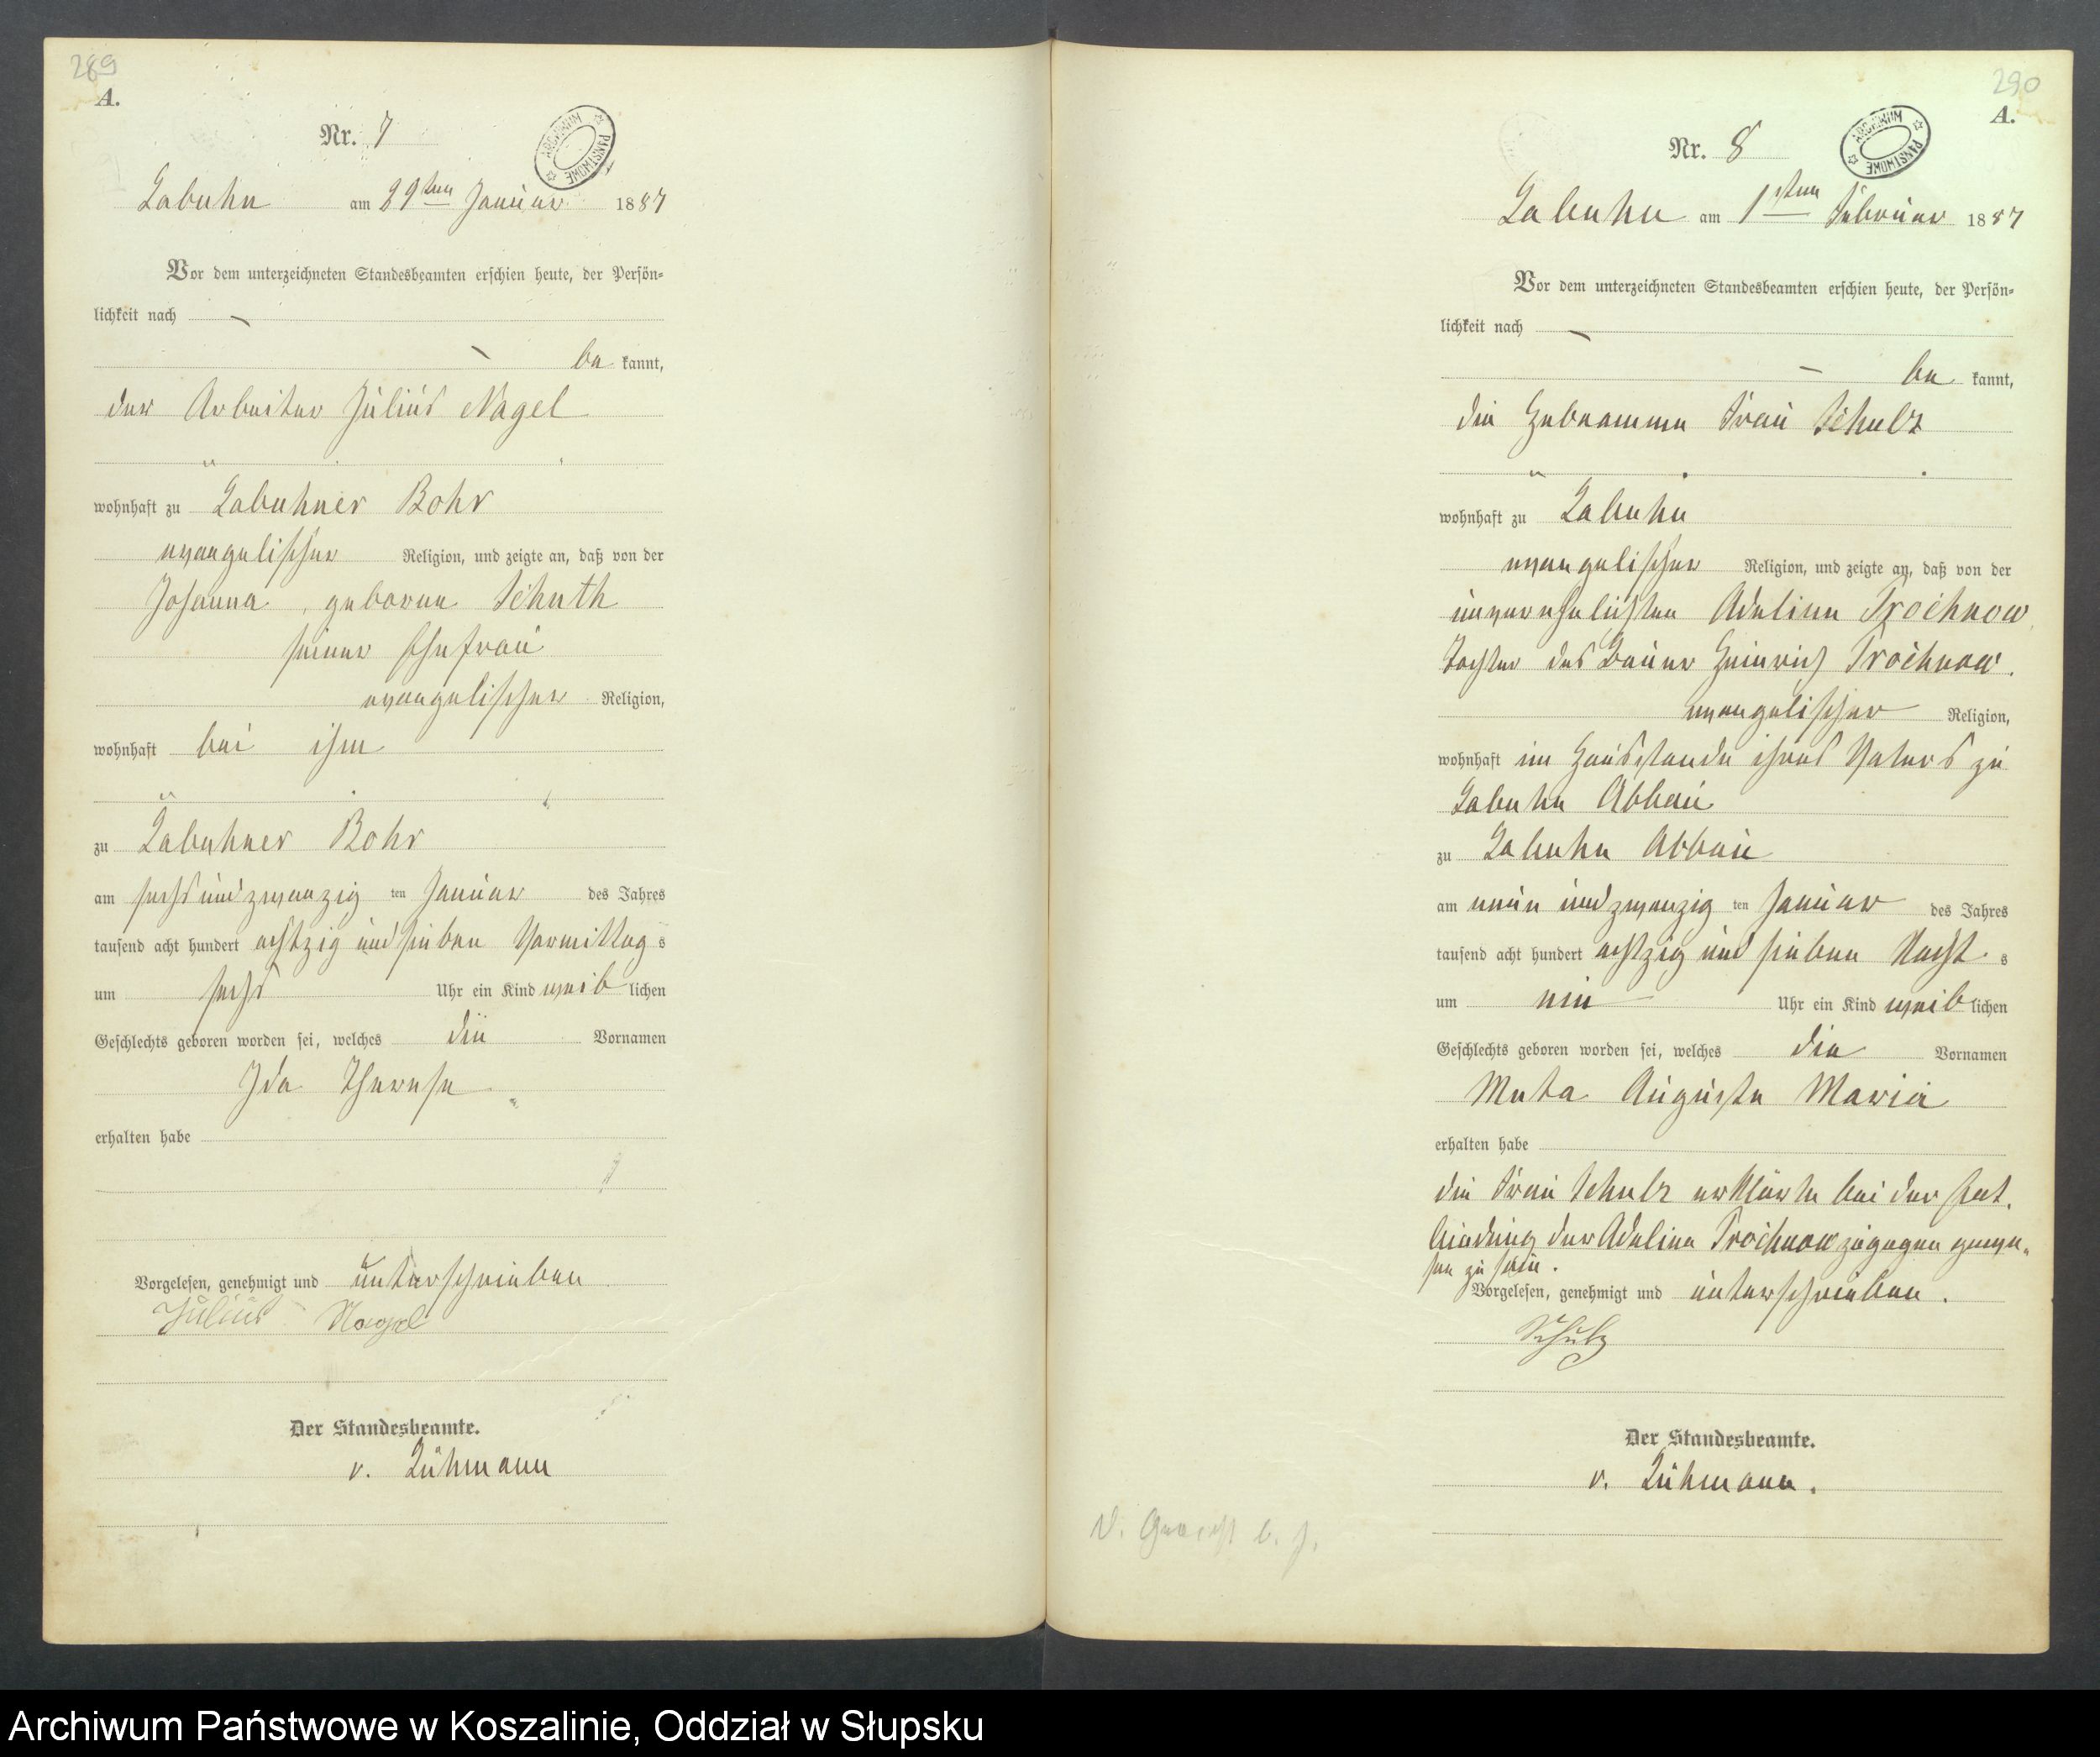 289
A.
Nr. 7
ARCHIWUM PAŃSTWOWE
Labuhn am 29ten Januar 1887
Vor dem unterzeichneten Standesbeamten erschien heute, der Persön-
lichkeit nach
be kannt,
der Arbeiter Julius Nagel
wohnhaft zu Labuhner Bohr
evangelischer Religion, und zeigte an, daß von der
Johanna, geborene Schuth
seiner Ehefrau
evangelischer Religion,
wohnhaft bei ihm
zu Labuhner Bohr
am sechs und zwanzig ten Januar des Jahres
tausend acht hundert achtzig und sieben Vormittag s
um sechs Uhr ein Kind weib lichen
Geschlechts geboren worden sei, welches die Vornamen
Ida Therese
erhalten habe
Vorgelesen, genehmigt und unterschrieben
Julius Nagel
Der Standesbeamte.
v. Lühmann
290
A.
Nr. 8
ARCHIWUM PAŃSTWOWE
Labuhn am 1sten Februar 1887
Vor dem unterzeichneten Standesbeamten erschien heute, der Persön-
lichkeit nach
be kannt,
die Hebeamme Frau Schulz
wohnhaft zu Labuhn
evangelischer Religion, und zeigte an, daß von der
unverehelichten Adeline Troschnow
Tochter des Bauer Heinrich Troschnow.
evangelischer Religion,
wohnhaft im Hausstande ihres Vaters zu
Labuhn Abbau
zu Labuhn Abbau
am neun und zwanzig ten Januar des Jahres
tausend acht hundert achtzig und sieben Nacht s
um ein Uhr ein Kind weib lichen
Geschlechts geboren worden sei, welches die Vornamen
Meta Auguste Marie
erhalten habe
die Frau Schulz erklärte bei der Ent.
bindung der Adeline Troschnow zugegen gewe-
sen zu sein.
Vorgelesen, genehmigt und unterschrieben.
Schulz
Der Standesbeamte.
v. Lühmann.
Archiwum Państwowe w Koszalinie, Oddział w Słupsku